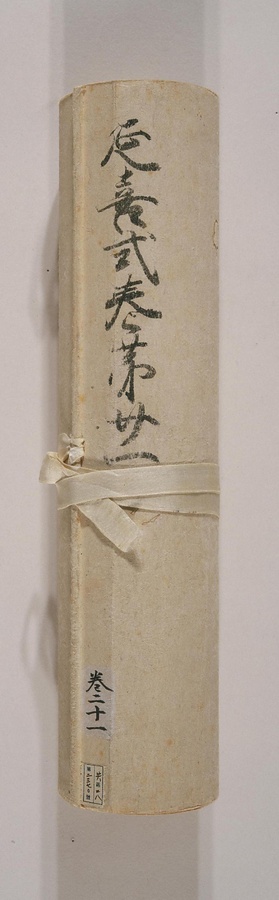 延喜式巻第廿一
巻二十一